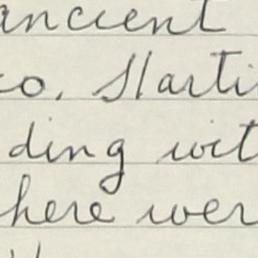 ancient
co. Starti
ding wit
here wer